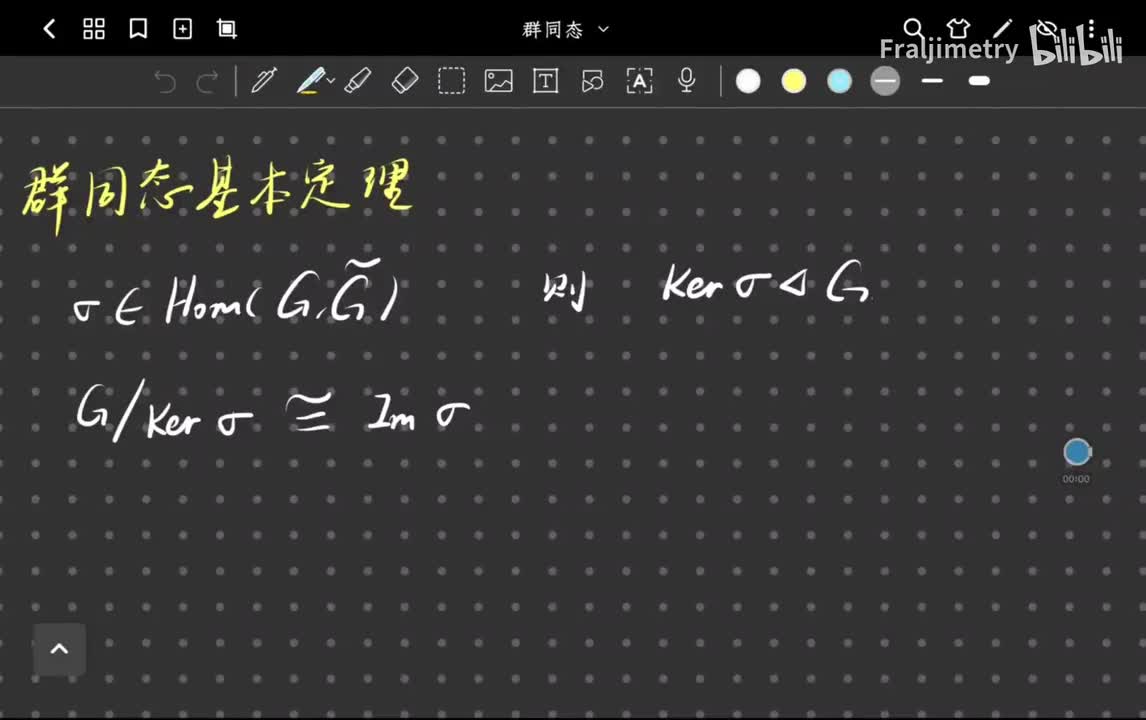 群同态
Fraljimetry bilibili
T A
群同态基本定理
σ ∈ Hom(G, G̃) 则 Ker σ ◁ G
G/Ker σ ≅ Im σ
00:00